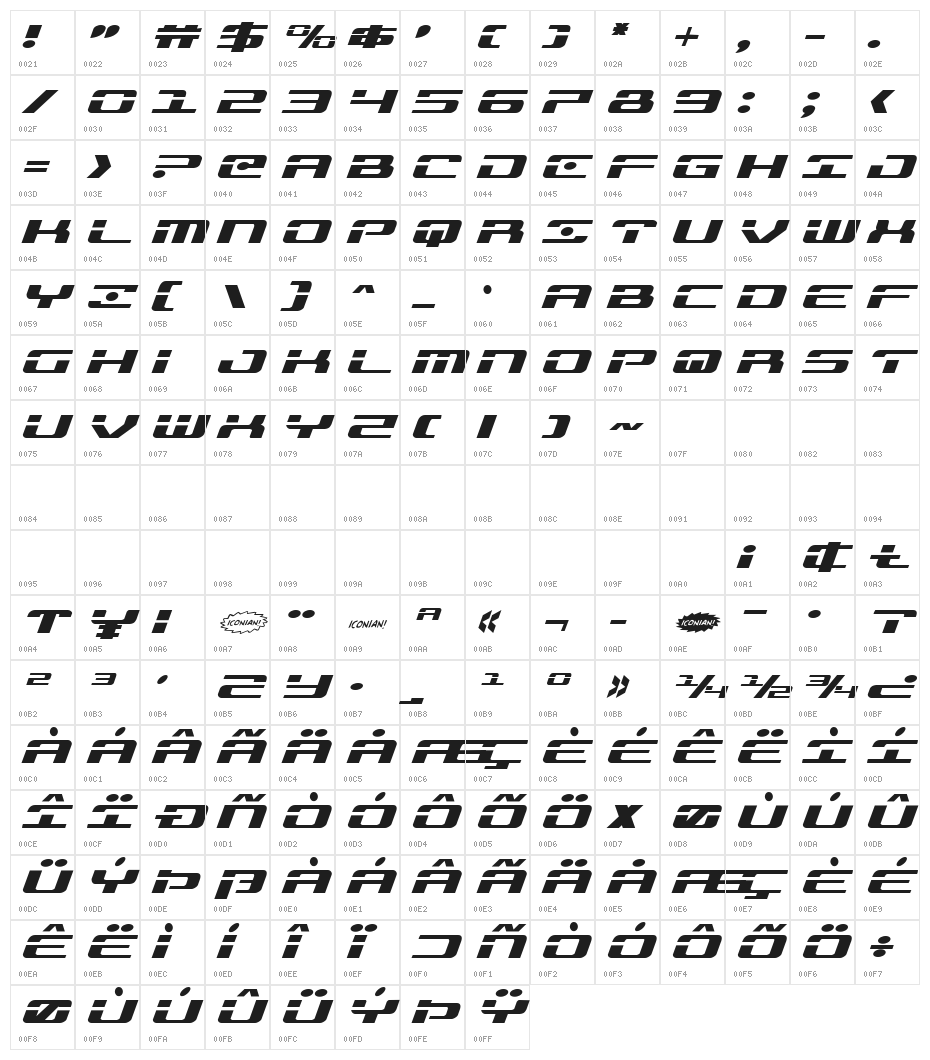 ! " # $ % & ' ( ) * + , - .
0021 0022 0023 0024 0025 0026 0027 0028 0029 002A 002B 002C 002D 002E
/ 0 1 2 3 4 5 6 7 8 9 : ; <
002F 0030 0031 0032 0033 0034 0035 0036 0037 0038 0039 003A 003B 003C
= > ? @ A B C D E F G H I J
003D 003E 003F 0040 0041 0042 0043 0044 0045 0046 0047 0048 0049 004A
K L M N O P Q R S T U V W X
004B 004C 004D 004E 004F 0050 0051 0052 0053 0054 0055 0056 0057 0058
Y Z [ \ ] ^ _ ` A B C D E F
0059 005A 005B 005C 005D 005E 005F 0060 0061 0062 0063 0064 0065 0066
G H I J K L M N O P Q R S T
0067 0068 0069 006A 006B 006C 006D 006E 006F 0070 0071 0072 0073 0074
U V W X Y Z { | } ~
0075 0076 0077 0078 0079 007A 007B 007C 007D 007E 007F 0080 0082 0083
0084 0085 0086 0087 0088 0089 008A 008B 008C 008E 0091 0092 0093 0094
¡ ¢ £
0095 0096 0097 0098 0099 009A 009B 009C 009E 009F 00A0 00A1 00A2 00A3
T ¥ ! ICONIAN! ¨ ICONIAN! ª « ¬ - ICONIAN! ¯ ° T
00A4 00A5 00A6 00A7 00A8 00A9 00AA 00AB 00AC 00AD 00AE 00AF 00B0 00B1
² ³ ´ Z Y · ¸ ¹ º » ¼ ½ ¾ ¿
00B2 00B3 00B4 00B5 00B6 00B7 00B8 00B9 00BA 00BB 00BC 00BD 00BE 00BF
À Á Â Ã Ä Å Æ Ç È É Ê Ë Ì Í
00C0 00C1 00C2 00C3 00C4 00C5 00C6 00C7 00C8 00C9 00CA 00CB 00CC 00CD
Î Ï Ð Ñ Ò Ó Ô Õ Ö × Ø Ù Ú Û
00CE 00CF 00D0 00D1 00D2 00D3 00D4 00D5 00D6 00D7 00D8 00D9 00DA 00DB
Ü Ý Þ ß À Á Â Ã Ä Å Æ Ç È É
00DC 00DD 00DE 00DF 00E0 00E1 00E2 00E3 00E4 00E5 00E6 00E7 00E8 00E9
Ê Ë Ì Í Î Ï Ñ Ò Ó Ô Õ Ö ÷
00EA 00EB 00EC 00ED 00EE 00EF 00F0 00F1 00F2 00F3 00F4 00F5 00F6 00F7
Ø Ù Ú Û Ü Ý Þ Ÿ
00F8 00F9 00FA 00FB 00FC 00FD 00FE 00FF